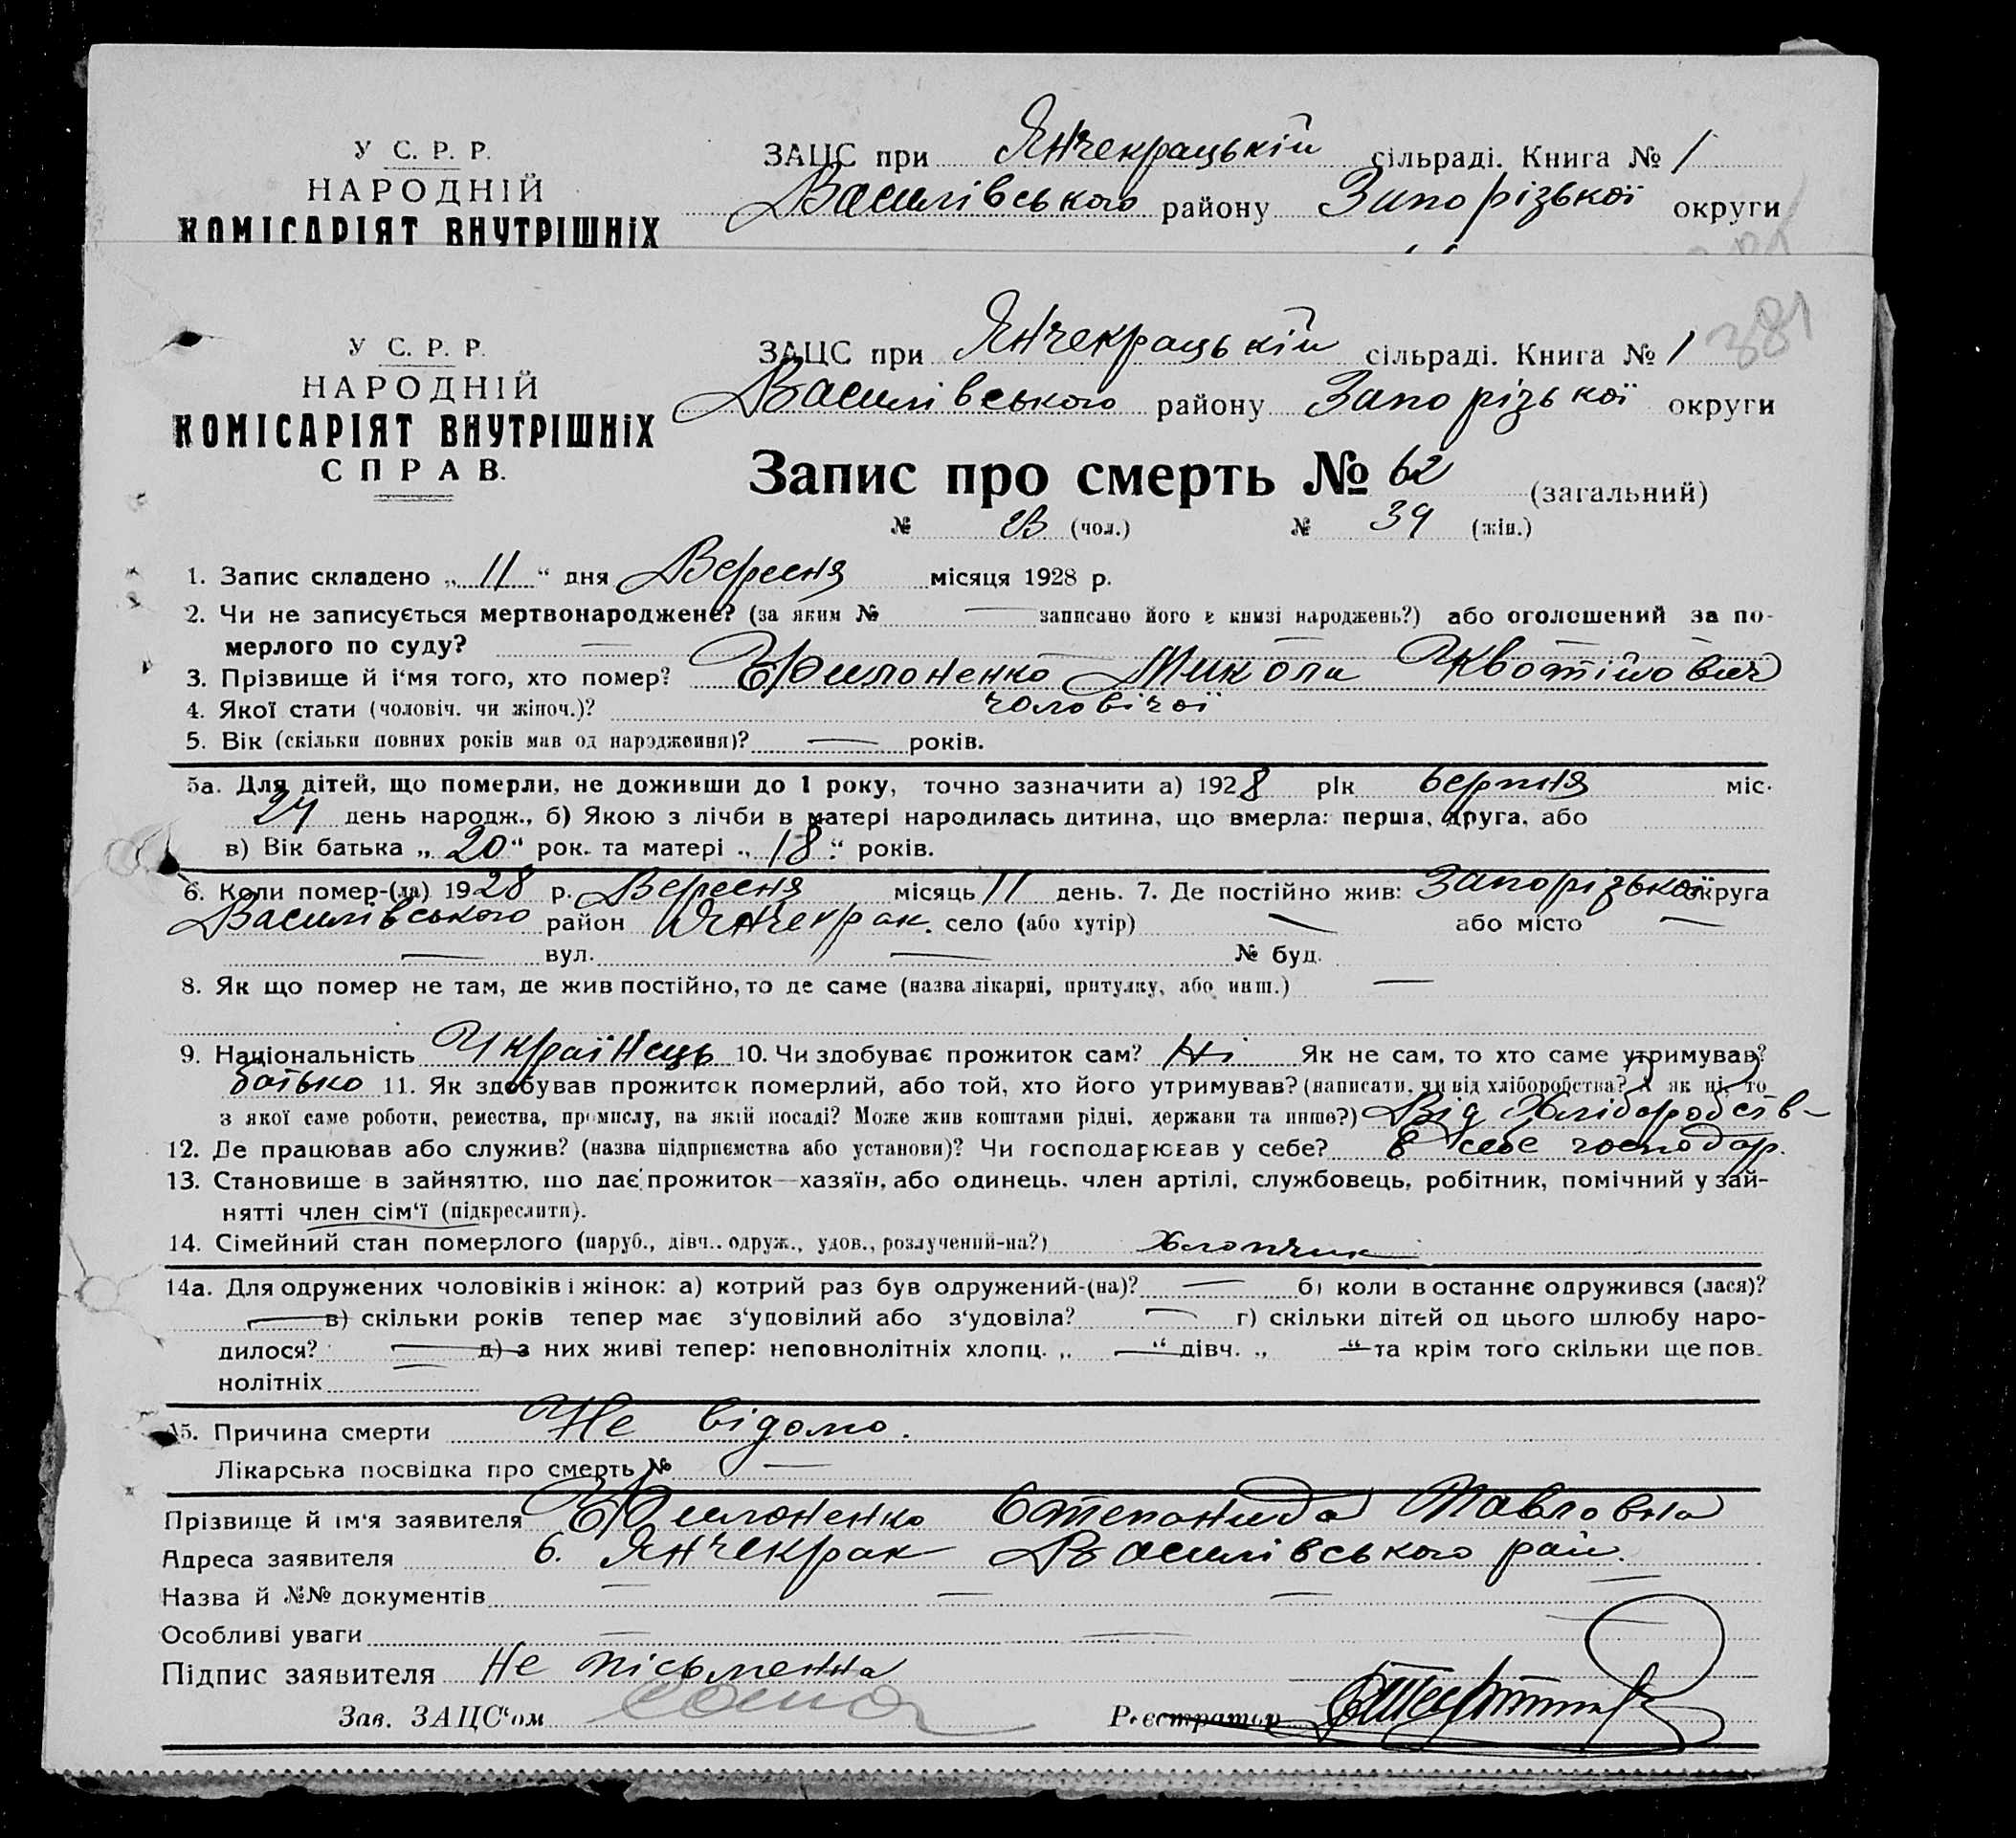 У С. Р. Р.
НАРОДНІЙ
КОМІСАРІЯТ ВНУТРІШНІХ
ЗАЦС при Янчекрацькій сільраді. Книга № 1
Василівського району Запорізької округи
381
У С. Р. Р.
НАРОДНІЙ
КОМІСАРІЯТ ВНУТРІШНІХ
СПРАВ.
ЗАЦС при Янчекрацькій сільраді. Книга № 1
Василівського району Запорізької округи
Запис про смерть № 62 (загальний)
№ (чол.) № 39 (жін.)
1. Запис складено „ 11 “ дня Вересня місяця 1928 р.
2. Чи не записується мертвонароджене? (за яким № — записано його в книзі народжень?) або оголошений за по-
мерлого по суду? —
3. Прізвище й і‘мя того, хто помер? Микола
4. Якої стати (чоловіч. чи жіноч.)? чоловічої
5. Вік (скільки повних років мав од народження)? — років.
5а. Для дітей, що померли, не доживши до 1 року, точно зазначити а) 1928 рік серпня міс.
день народж., б) Якою з лічби в матері народилась дитина, що вмерла: перша, друга, або
в) Вік батька „ 20 “ рок. та матері „ 18 “ років.
6. Коли помер-(ла) 1928 р. Вересня місяць 11 день. 7. Де постійно жив: Запорізької округа
Василівського район Янчекрак. село (або хутір) — або місто —
— вул. — № буд.
8. Як що помер не там, де жив постійно, то де саме (назва лікарні, притулку, або инш.) —
9. Національність Українець 10. Чи здобуває прожиток сам? Ні Як не сам, то хто саме утримував?
батько 11. Як здобував прожиток померлий, або той, хто його утримував? (написати, чи від хліборобства? А як ні, то
з якої саме роботи, ремества, промислу, на якій посаді? Може жив коштами рідні, держави та инше?) Від Хліборобств-
12. Де працював або служив? (назва підприємства або установи)? Чи господарював у себе? в себе господар.
13. Становище в зайняттю, що дає прожиток—хазяїн, або одинець, член артілі, службовець, робітник, помічний у зай-
нятті член сім‘ї (підкреслити).
14. Сімейний стан померлого (паруб., дівч., одруж., удов., розлучений-на?) Хлопчик
14а. Для одружених чоловіків і жінок: а) котрий раз був одружений-(на)? — б) коли в останнє одружився (лася)?
— в) скільки років тепер має з‘удовілий або з‘удовіла? — г) скільки дітей од цього шлюбу наро-
дилося? — д) з них живі тепер: неповнолітніх хлопц. „ — “ дівч. „ — “ та крім того скільки ще пов-
нолітніх
15. Причина смерти Не відомо.
Лікарська посвідка про смерть № —
Прізвище й ім'я заявителя Степанида Павловна
Адреса заявителя с. Янчекрак Василівського рай.
Назва й №№ документів — — —
Особливі уваги — —
Підпис заявителя Не письменна
Зав. ЗАЦС‘ом Реєстратор